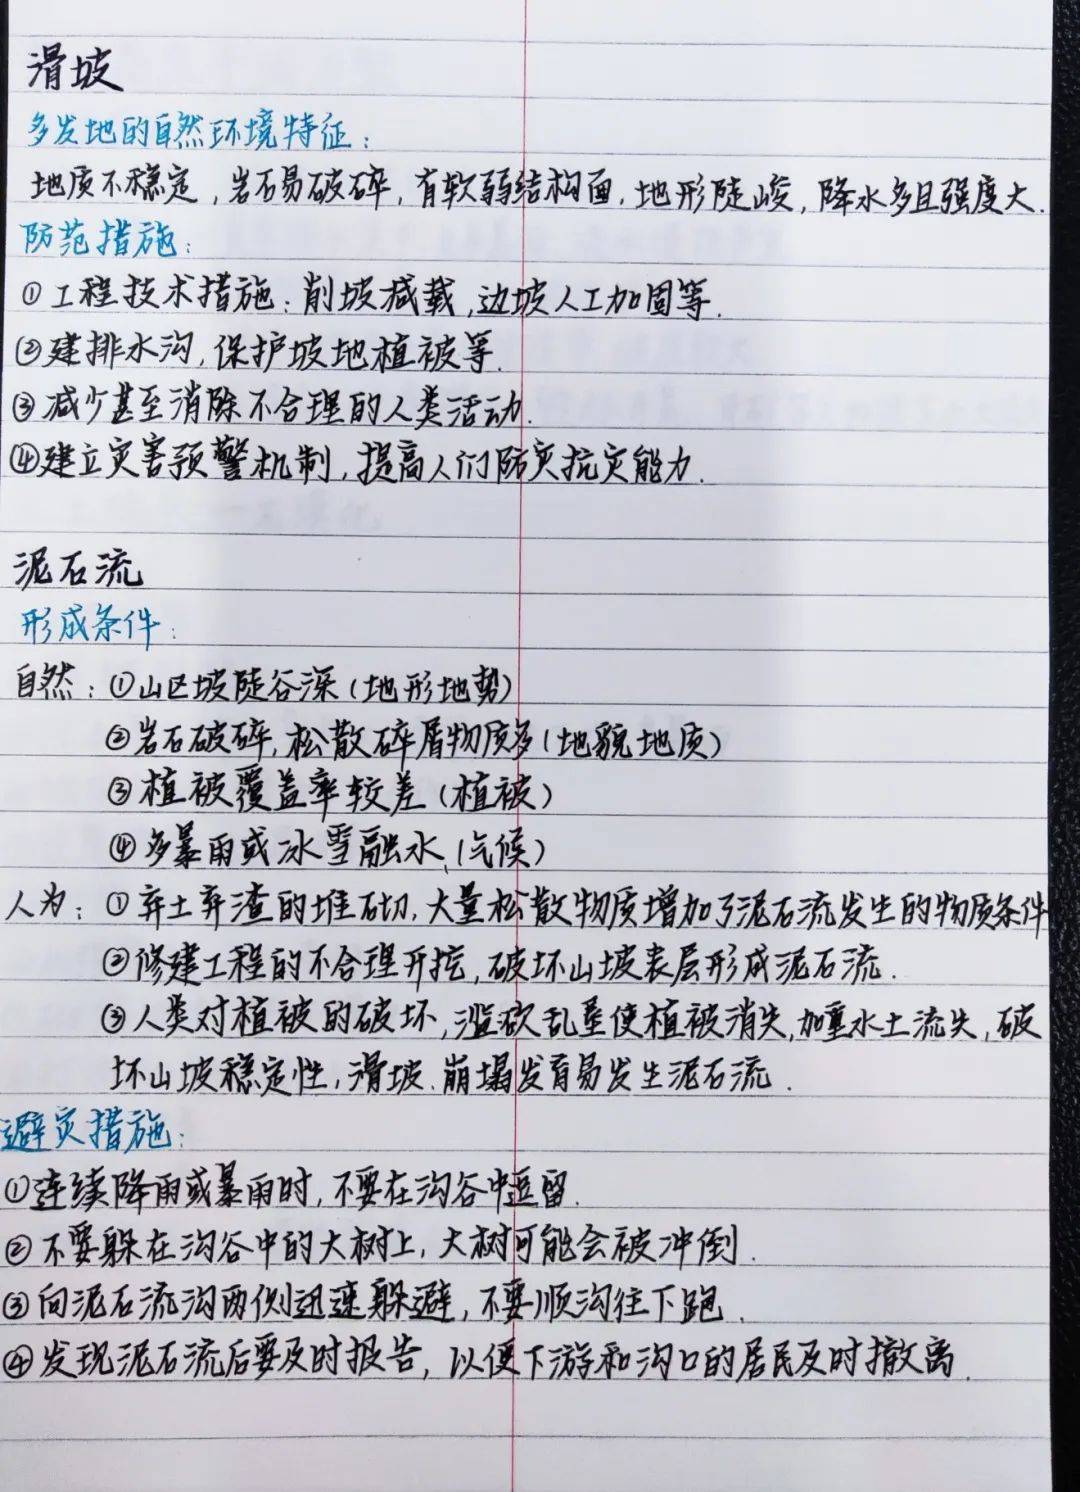 滑坡
多发地的自然环境特征：
地质不稳定，岩石易破碎，有软弱结构面，地形陡峻，降水多且强度大.
防范措施：
①工程技术措施：削坡减载，边坡人工加固等.
②建排水沟，保护坡地植被等.
③减少甚至消除不合理的人类活动.
④建立灾害预警机制，提高人们防灾抗灾能力.
泥石流
形成条件：
自然：①山区坡陡谷深（地形地势）
②岩石破碎，松散碎屑物质多（地貌地质）
③植被覆盖率较差（植被）
④多暴雨或冰雪融水（气候）
人为：①弃土弃渣的堆砌，大量松散物质增加了泥石流发生的物质条件
②修建工程的不合理开挖，破坏山坡表层形成泥石流.
③人类对植被的破坏，滥砍乱垦使植被消失，加重水土流失，破
坏山坡稳定性，滑坡、崩塌发育易发生泥石流.
避灾措施：
①连续降雨或暴雨时，不要在沟谷中逗留.
②不要躲在沟谷中的大树上，大树可能会被冲倒.
③向泥石流沟两侧迅速躲避，不要顺沟往下跑.
④发现泥石流后要及时报告，以便下游和沟口的居民及时撤离.